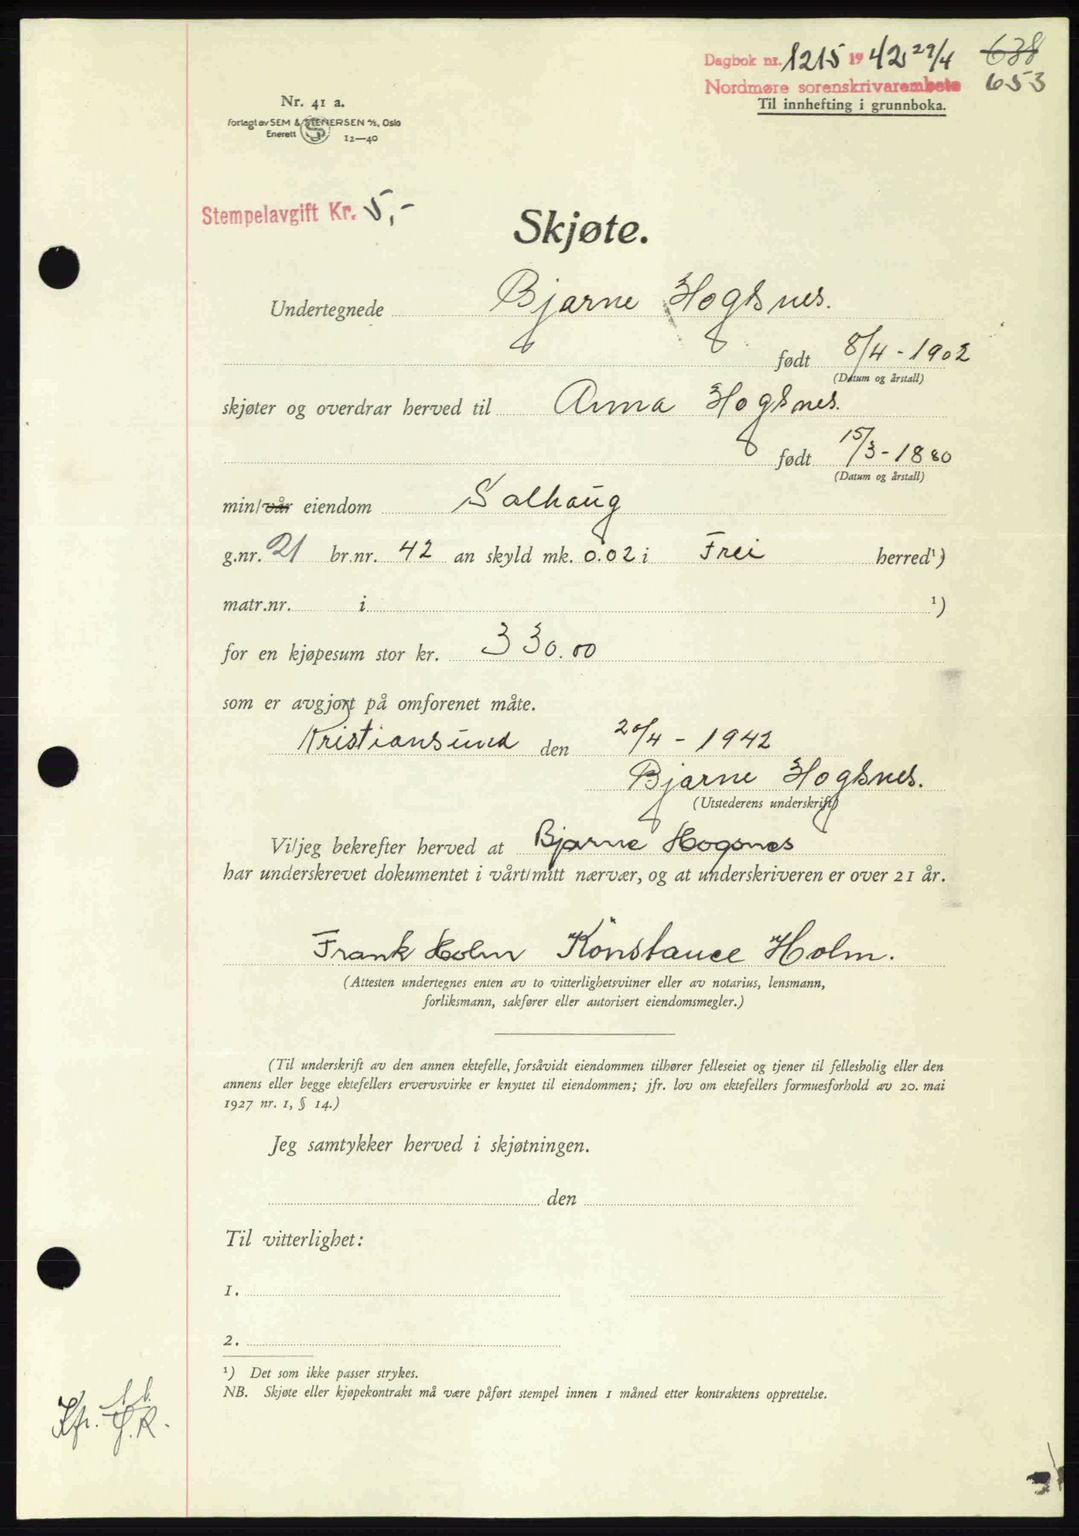 Dagbok nr. 1215 1942 29/4 638
Nordmøre sorenskrivarembete 653
Til innhefting i grunnboka.
Nr. 41 a.
Forlagt av SEM & STENERSEN A/S, Oslo
Enerett 12—40
Stempelavgift Kr. 5,-
Skjøte.
Undertegnede Bjarne Hogsnes.
født 8/4 - 1902
(Datum og årstall)
skjøter og overdrar herved til Anna Hogsnes.
født 15/3 - 1880
(Datum og årstall)
min/vår eiendom Solhaug
g.nr. 21 br.nr. 42 an skyld mk. 0.02 i Frei herred¹)
matr.nr. i ¹)
for en kjøpesum stor kr. 330.00
som er avgjort på omforenet måte.
Kristiansund den 20/4 - 1942
Bjarne Hogsnes.
(Utstederens underskrift)
Vi/jeg bekrefter herved at Bjarne Hogsnes
har underskrevet dokumentet i vårt/mitt nærvær, og at underskriveren er over 21 år.
Frank Holm Konstance Holm.
(Attesten undertegnes enten av to vitterlighetsvitner eller av notarius, lensmann,
forliksmann, sakfører eller autorisert eiendomsmegler.)
(Til underskrift av den annen ektefelle, forsåvidt eiendommen tilhører felleseiet og tjener til fellesbolig eller den
annens eller begge ektefellers ervervsvirke er knyttet til eiendommen; jfr. lov om ektefellers formuesforhold av 20. mai
1927 nr. 1, § 14.)
Jeg samtykker herved i skjøtningen.
den
Til vitterlighet:
1.
2.
¹) Det som ikke passer strykes.
NB. Skjøte eller kjøpekontrakt må være påført stempel innen 1 måned etter kontraktens opprettelse.